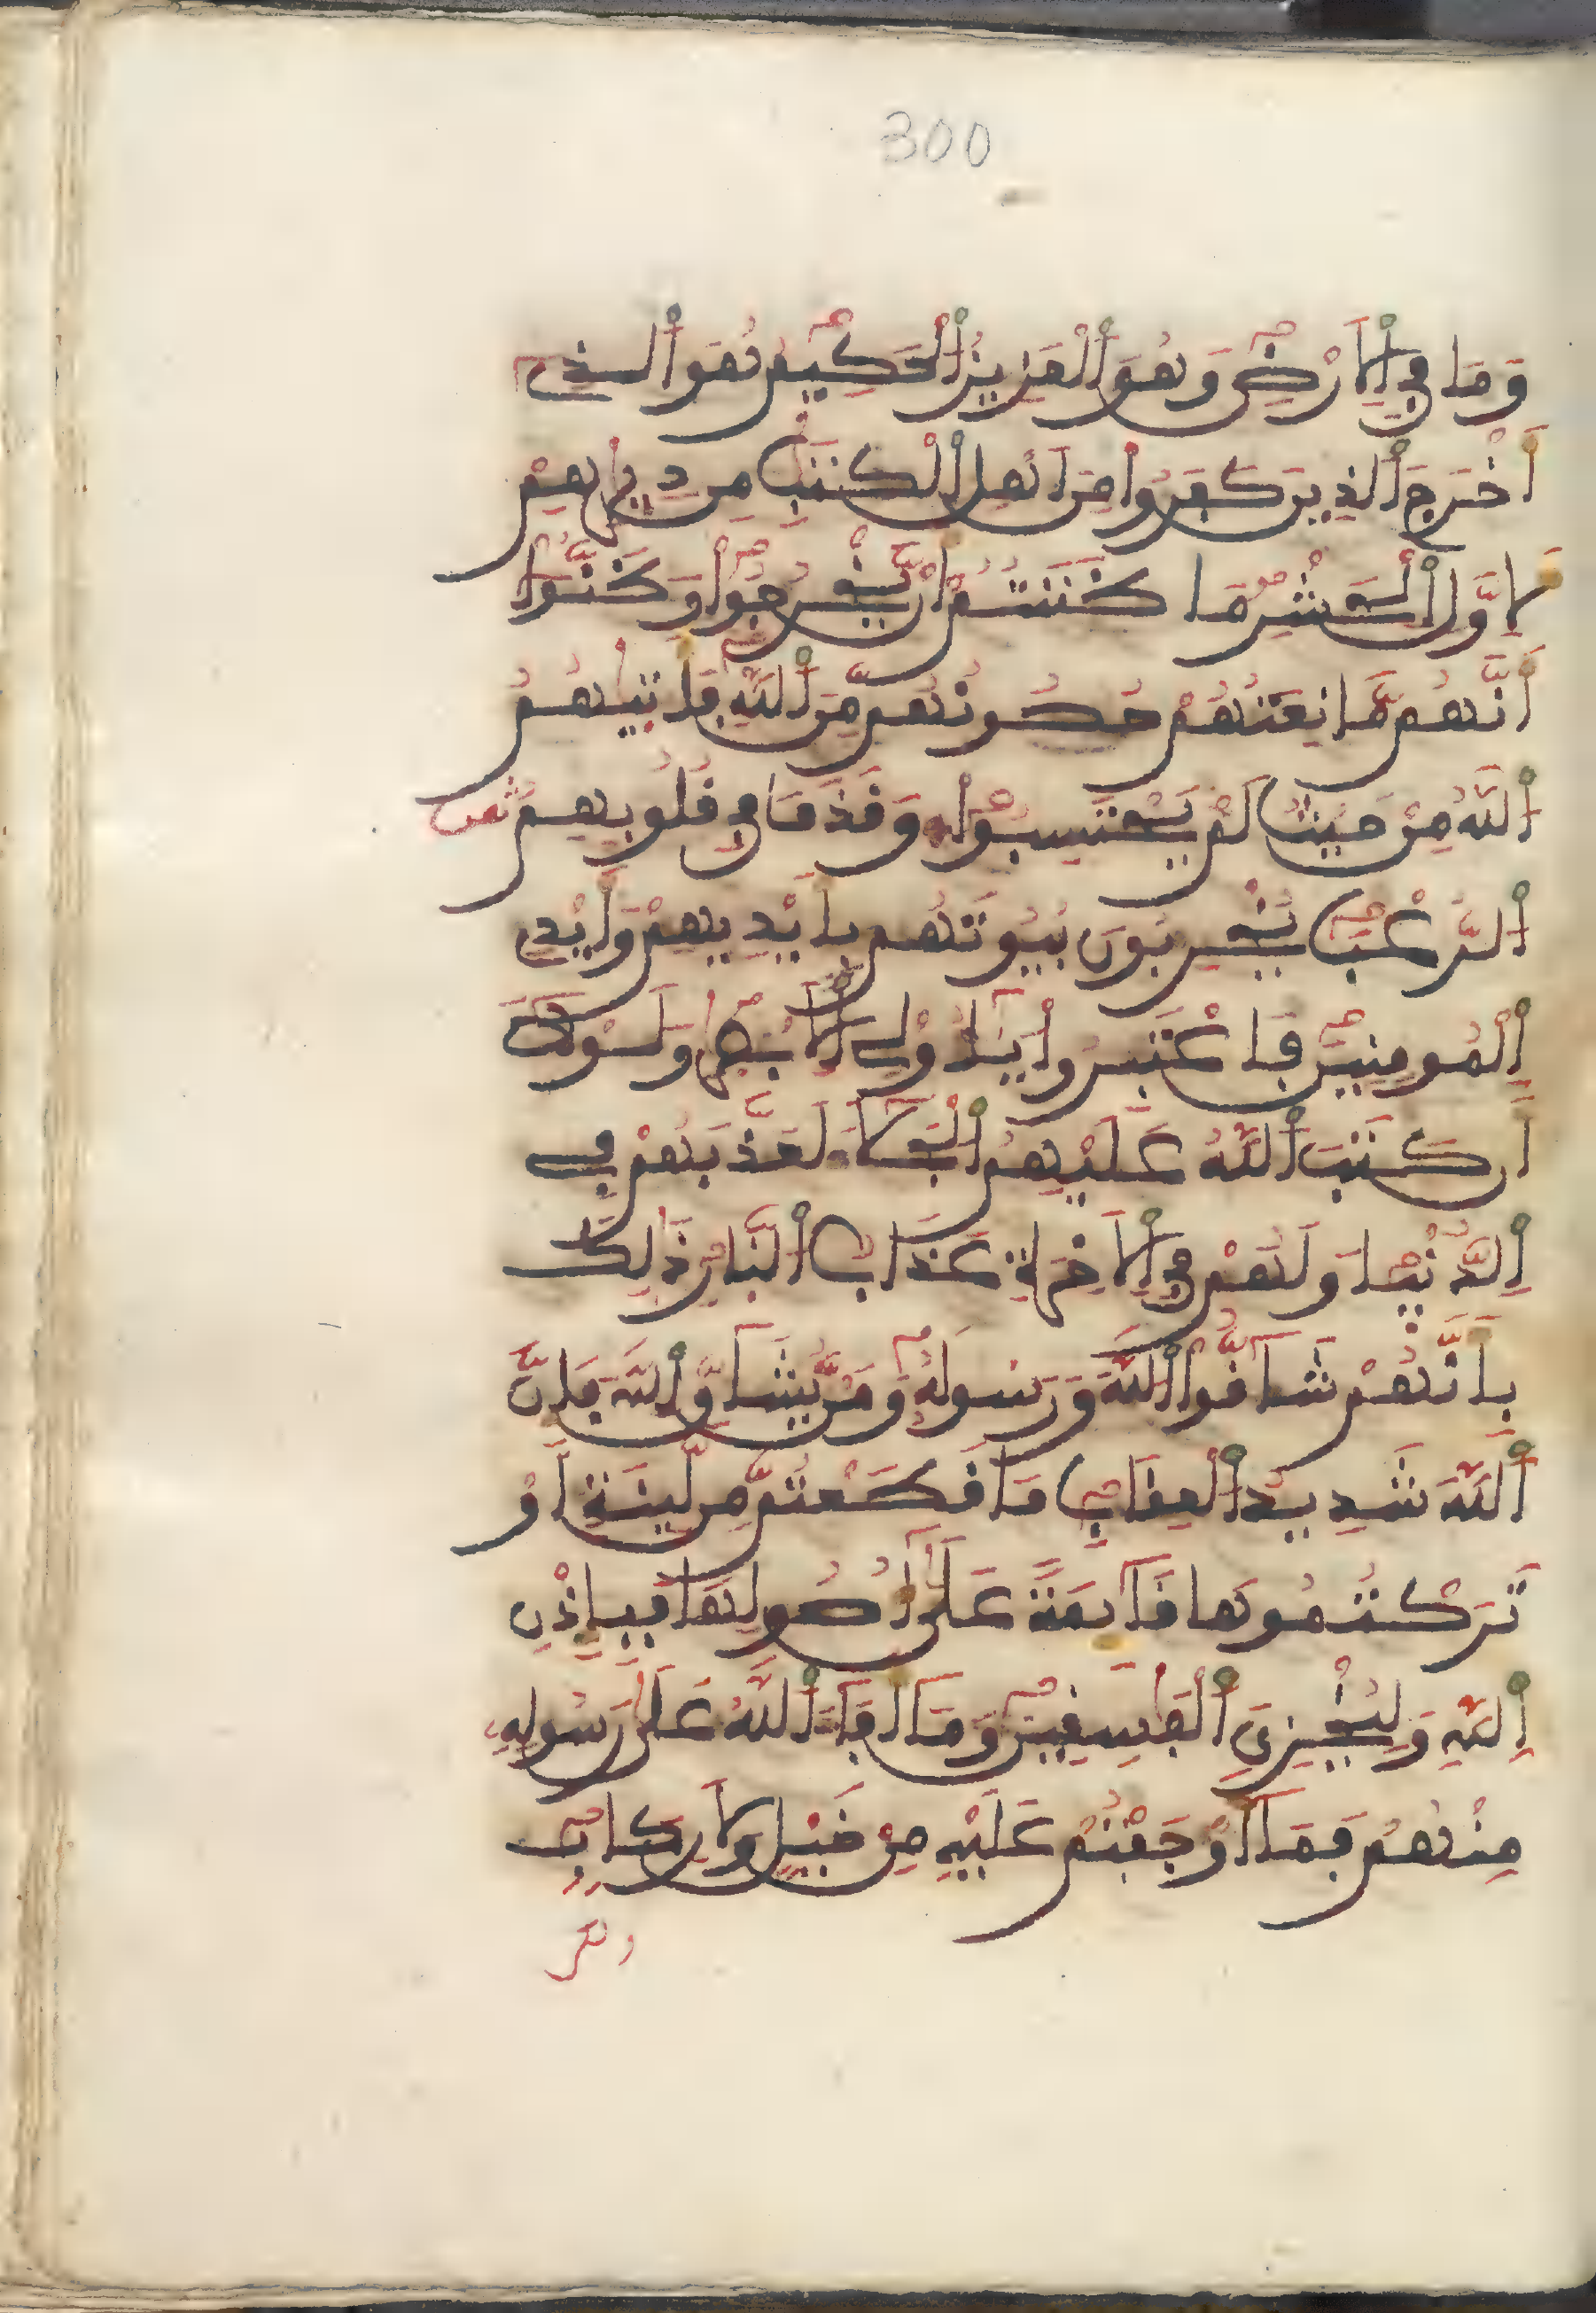 300
وَمَا فِي اِ۬لَارْضِ وَهُوَ اَ۬لْعَزِيزُ اُ۬لْحَكِيمُ هُوَ اَ۬لذِے
أَخْرَجَ اَ۬لذِينَ كَفَرُواْ مِنَ اَهْلِ اِ۬لْكِتَٰبِ مِن دِيٰ۪رِهِمْ
لِأَوَّلِ اِ۬لْحَشْرِ مَا ظَنَنتُمُ أَنْ يَّخْرُجُواْ وَظَنُّواْ
أَنَّهُم مَّانِعَتُهُمْ حُصُونُهُم مِّنَ اَ۬للَّهِ فَأَتَيٰهُمُ
اُ۬للَّهُ مِنْ حَيْثُ لَمْ يَحْتَسِبُواْ وَقَذَفَ فِي قُلُوبِهِمُ
ثمن
اُ۬لرُّعْبَ يُخْرِبُونَ بُيُوتَهُم بِأَيْدِيهِمْ وَأَيْدِے
اِ۬لْمُومِنِينَ فَاعْتَبِرُواْ يَٰأُوْلِے اِ۬لَابْصٰ۪رِ وَلَوْلَآ
أَن كَتَبَ اَ۬للَّهُ عَلَيْهِمُ اُ۬لْجَلَآءَ لَعَذَّبَهُمْ فِے
اِ۬لدُّنْيَا وَلَهُمْ فِي اِ۬لَاخِرَةِ عَذَابُ اُ۬لنّ۪ارِ ذَٰلِكَ
بِأَنَّهُمْ شَآقُّواْ اُ۬للَّهَ وَرَسُولَهُۥ وَمَنْ يُّشَآقِّ اِ۬للَّهَ فَإِنَّ
اَ۬للَّهَ شَدِيدُ اُ۬لْعِقَابِ مَا قَطَعْتُم مِّن لِّينَةٍ أَوْ
تَرَكْتُمُوهَا قَآئِمَةً عَلَىٰٓ أُصُولِهَا فَبِإِذْنِ
اِ۬للَّهِ وَلِيُخْزِيَ اَ۬لْفَٰسِقِينَ وَمَآ أَفَآءَ اَ۬للَّهُ عَلَىٰ رَسُولِهِۦ
مِنْهُمْ فَمَآ أَوْجَفْتُمْ عَلَيْهِ مِنْ خَيْلٍ وَلَا رِكَابٍ
ولكن